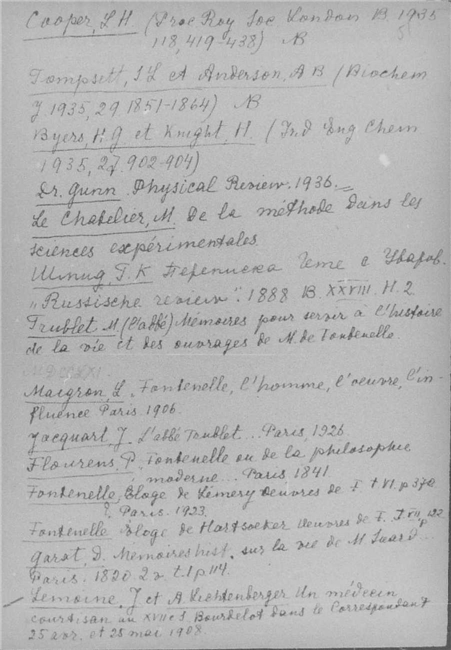 Cooper, L H. (Proc Roy Soc London B. 1935
118, 419-438) NB
Tompsett, S L et Anderson, A B (Biochem
J 1935, 29 1851-1864) NB
Byers, H. G et Knight, H. (Ind Eng Chem
1935, 27. 902-904)
Dr. Gunn. Physical Review. 1936.
Le Chatelier, M. De la méthode dains les
sciences expérimentales.
Шмид, Г. К Переписка Гете с Уваров.
„Russische review". 1888 B. XXVIII. H. 2
Trublet M. (L'abbé) Mémoires pour servir à l'histoire
de la vie et des ouvrages de M. de Fontenelle.
Maigron, L. Fontenelle, l'homme, l'oeuvre, l'in-
fluence Paris 1906.
Jacquart J. L'abbé Trublet... Paris, 1926
Flourens, P. Fontenelle ou de la philosophie
moderne... Paris 1841.
Fontenelle, Eloge de Lemery Oeuvres de F. t VI. p 372
Paris. 1923.
Fontenelle. Eloge de Hartsoeker Oeuvres de F. T. VII, p
Garat, D. Memoires hist. sur la vie de M Suard...
Paris. 1820 2v. t. 1 p 114.
Lemoine, J et A Lichtenberger Un médecin
courtisan au XVII e s. Bourdelot dans le Correspondant
25 avr. et 25 mai 1908.